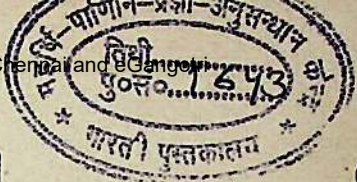 पाणिनि-प्रज्ञा-अनुसन्धान
Chennai and eGangotri
तिथी
पु०स० 1643
* भारती पुस्तकालय *